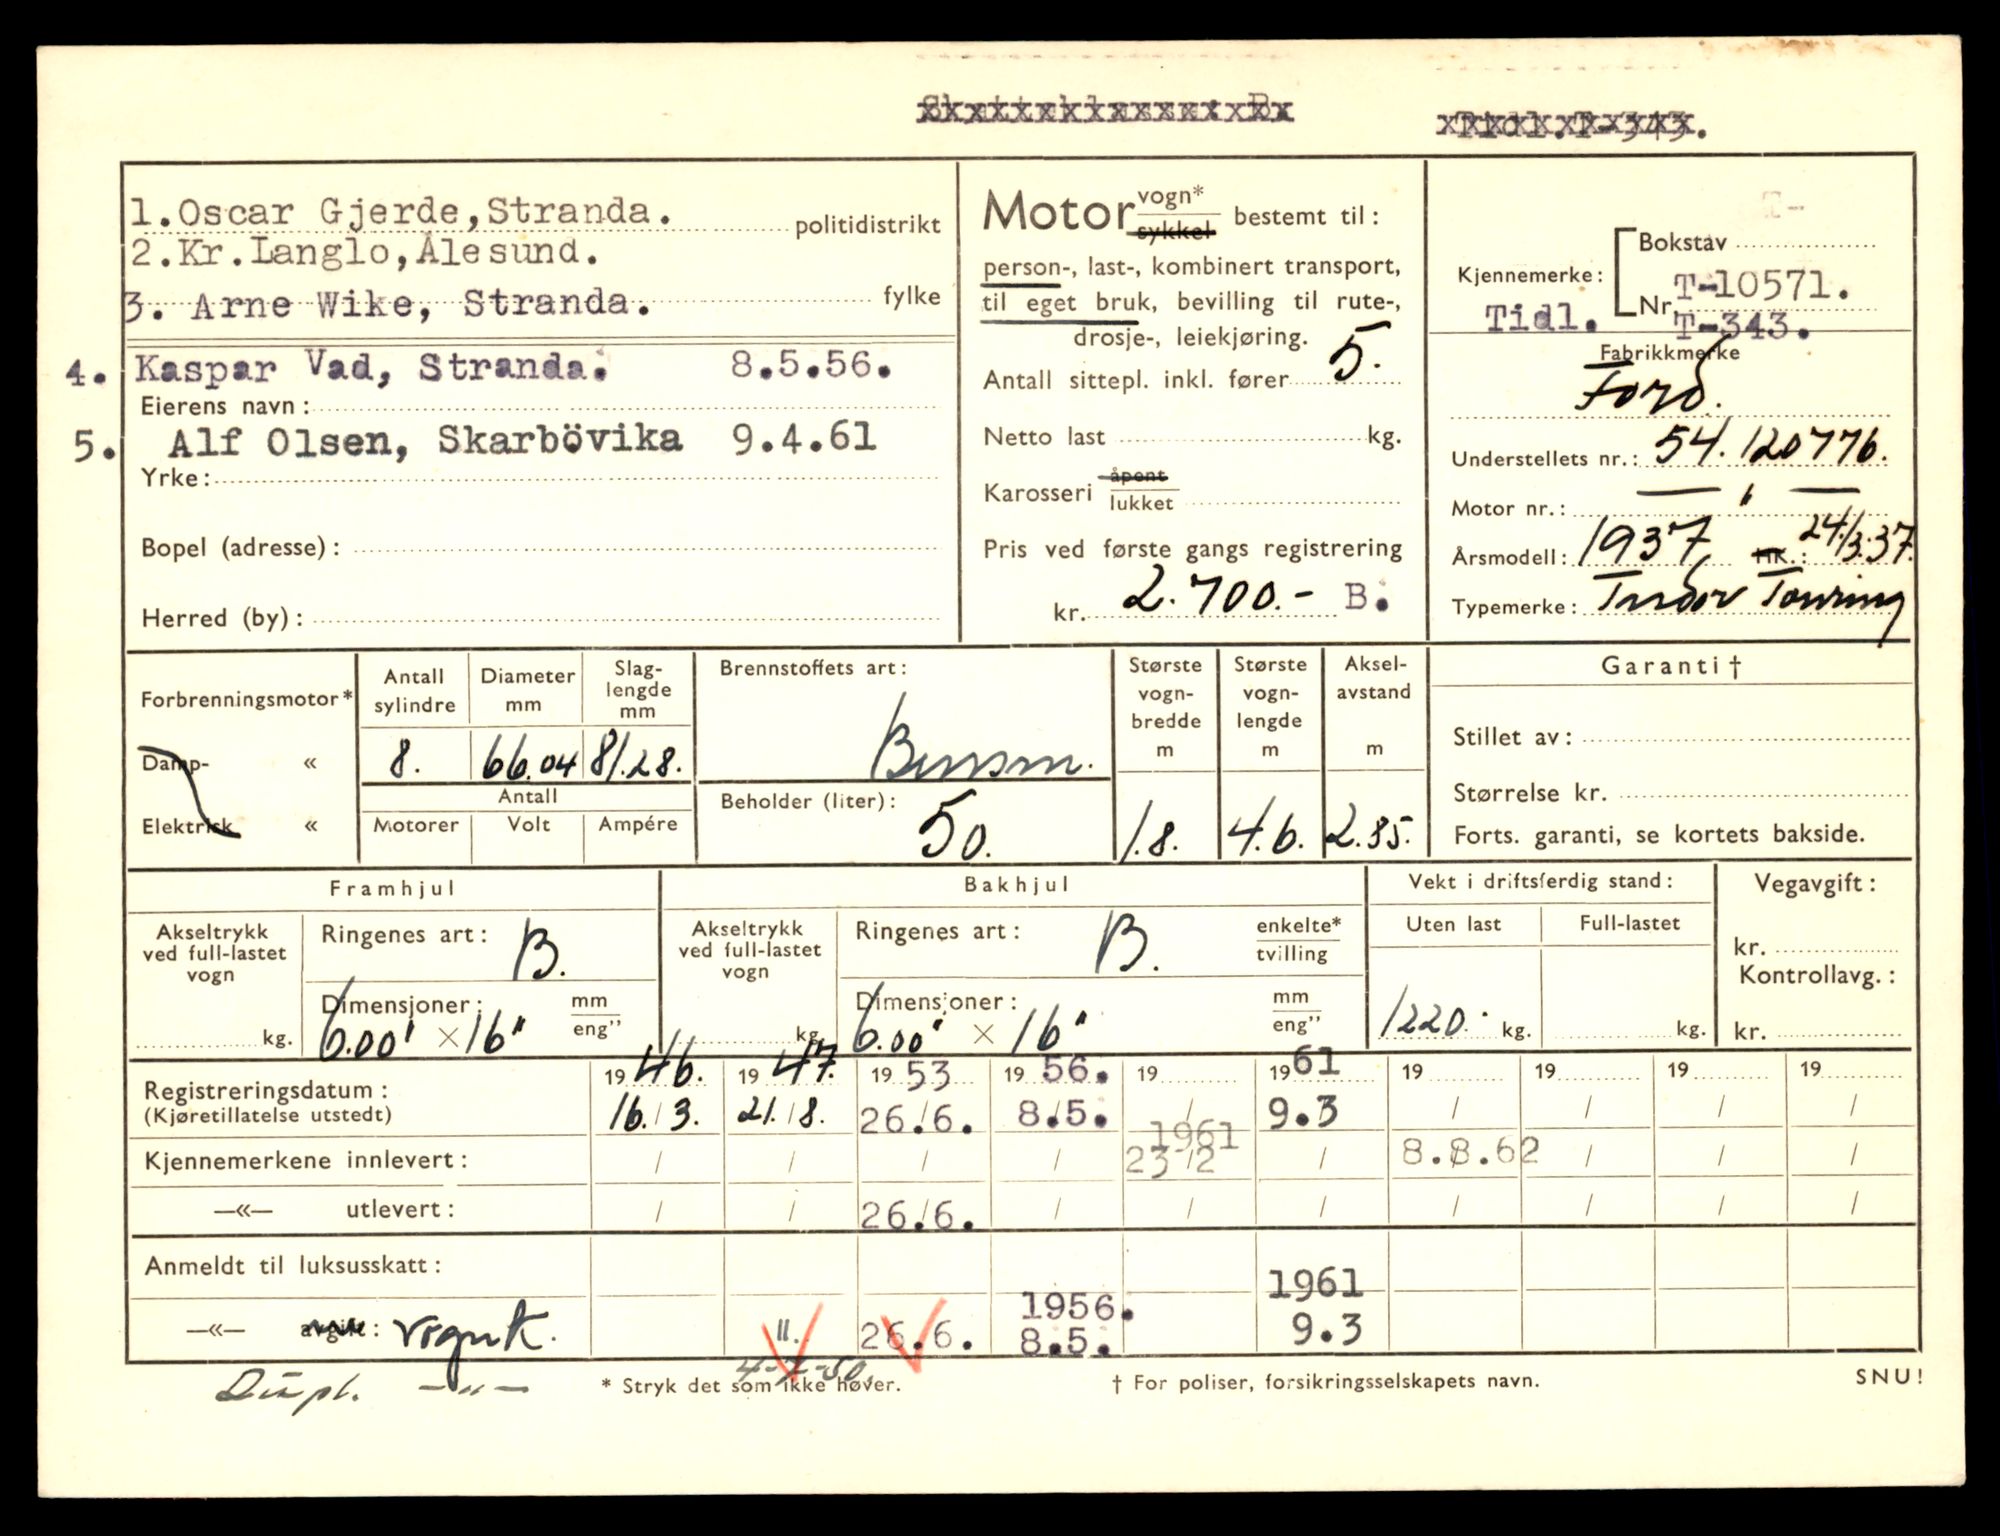 Skatteklasse: B.
Tidl.T-343.
1.Oscar Gjerde,Stranda. politidistrikt
2.Kr.Langlo,Ålesund.
3. Arne Wike, Stranda. fylke
4. Kaspar Vad, Stranda. 8.5.56.
Eierens navn:
5. Alf Olsen, Skarbövika 9.4.61
Yrke:
Bopel (adresse):
Herred (by):
Motor vogn* sykkel bestemt til:
person-, last-, kombinert transport,
til eget bruk, bevilling til rute-,
drosje-, leiekjøring.
Antall sittepl. inkl. fører 5.
Netto last kg.
Karosseri åpent lukket
Pris ved første gangs registrering
kr. 2.700.- B.
T-
Kjennemerke: Bokstav
Nr. T-10571.
Tidl. T-343.
Fabrikkmerke
Ford.
Understellets nr.: 54.120776.
Motor nr.: — " —
Årsmodell: 1937 HK.: 24/3.37.
Typemerke: Tudor Touring
Forbrenningsmotor*
Damp- «
Elektrisk «
Antall sylindre
8.
Diameter mm
66.04
Slag-lengde mm
81.28.
Antall
Motorer Volt Ampére
Brennstoffets art:
Bensin.
Beholder (liter):
50.
Største vogn-bredde m
1.8.
Største vogn-lengde m
4.6.
Aksel-avstand m
2.85.
Garanti†
Stillet av:
Størrelse kr.
Forts. garanti, se kortets bakside.
Framhjul
Akseltrykk ved full-lastet vogn
kg.
Ringenes art: B.
Dimensjoner: mm eng”
6.00" × 16"
Bakhjul
Akseltrykk ved full-lastet vogn
kg.
Ringenes art: B. enkelte* tvilling
Dimensjoner: mm eng”
6.00" × 16"
Vekt i driftsferdig stand:
Uten last Full-lastet
1220. kg. kg.
Vegavgift:
kr.
Kontrollavg.:
kr.
Registreringsdatum: 19 46. 19 47. 19 53 19 56. 19 19 61 19 19 19 19
(Kjøretillatelse utstedt) 16./3. 21./8. 26./6. 8./5. / 9.3 / / / /
1961
Kjennemerkene innlevert: / / / / 23/2 / 8.8.62 / / /
—«— utlevert: / / 26./6. / / / / / / /
Anmeldt til luksusskatt:
1956. 1961
—«— avgift: vognk. ". 26.6. 8.5. 9.3
Dupl. —"— 4-7-50.
* Stryk det som ikke høver.
† For poliser, forsikringsselskapets navn.
SNU!